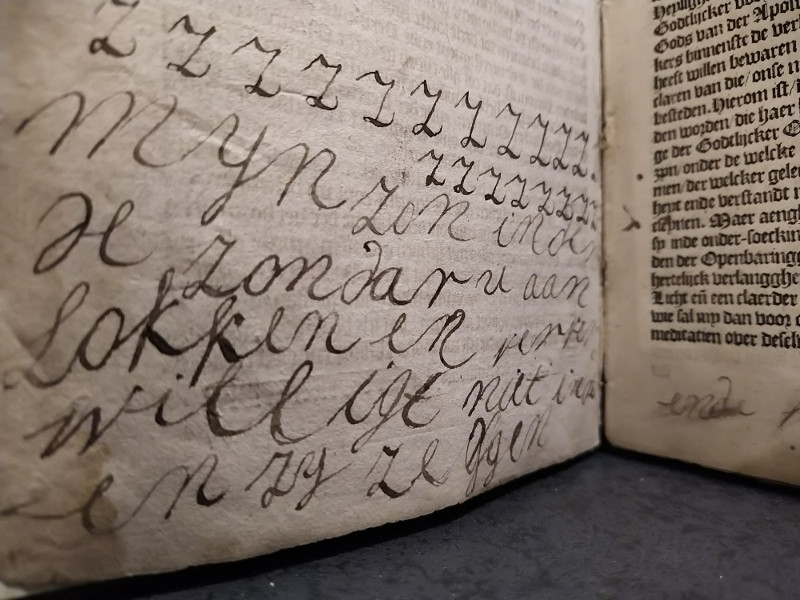 z z z z z z z z z z z
z z z z z z z
Myn zon inde
de zondar u aan
Lokken en
willigt niet in
en zy zeggen
Godtlijcker
Gods van der Apo
kers binnenste de ver
heeft willen bewaren
claren van die/onse
besteden. Hierom ist/
den worden/die haer
ge der Godtlijcker
zyn/onder de welcke
men/der welcker gele
heyt ende verstandt
Maer aeng
sy inde onder-soeckin
den der Openbaringg
hertelijck verlanggh
Licht eñ een claerder
wie sal my dan voor
meditatien over desel
ende